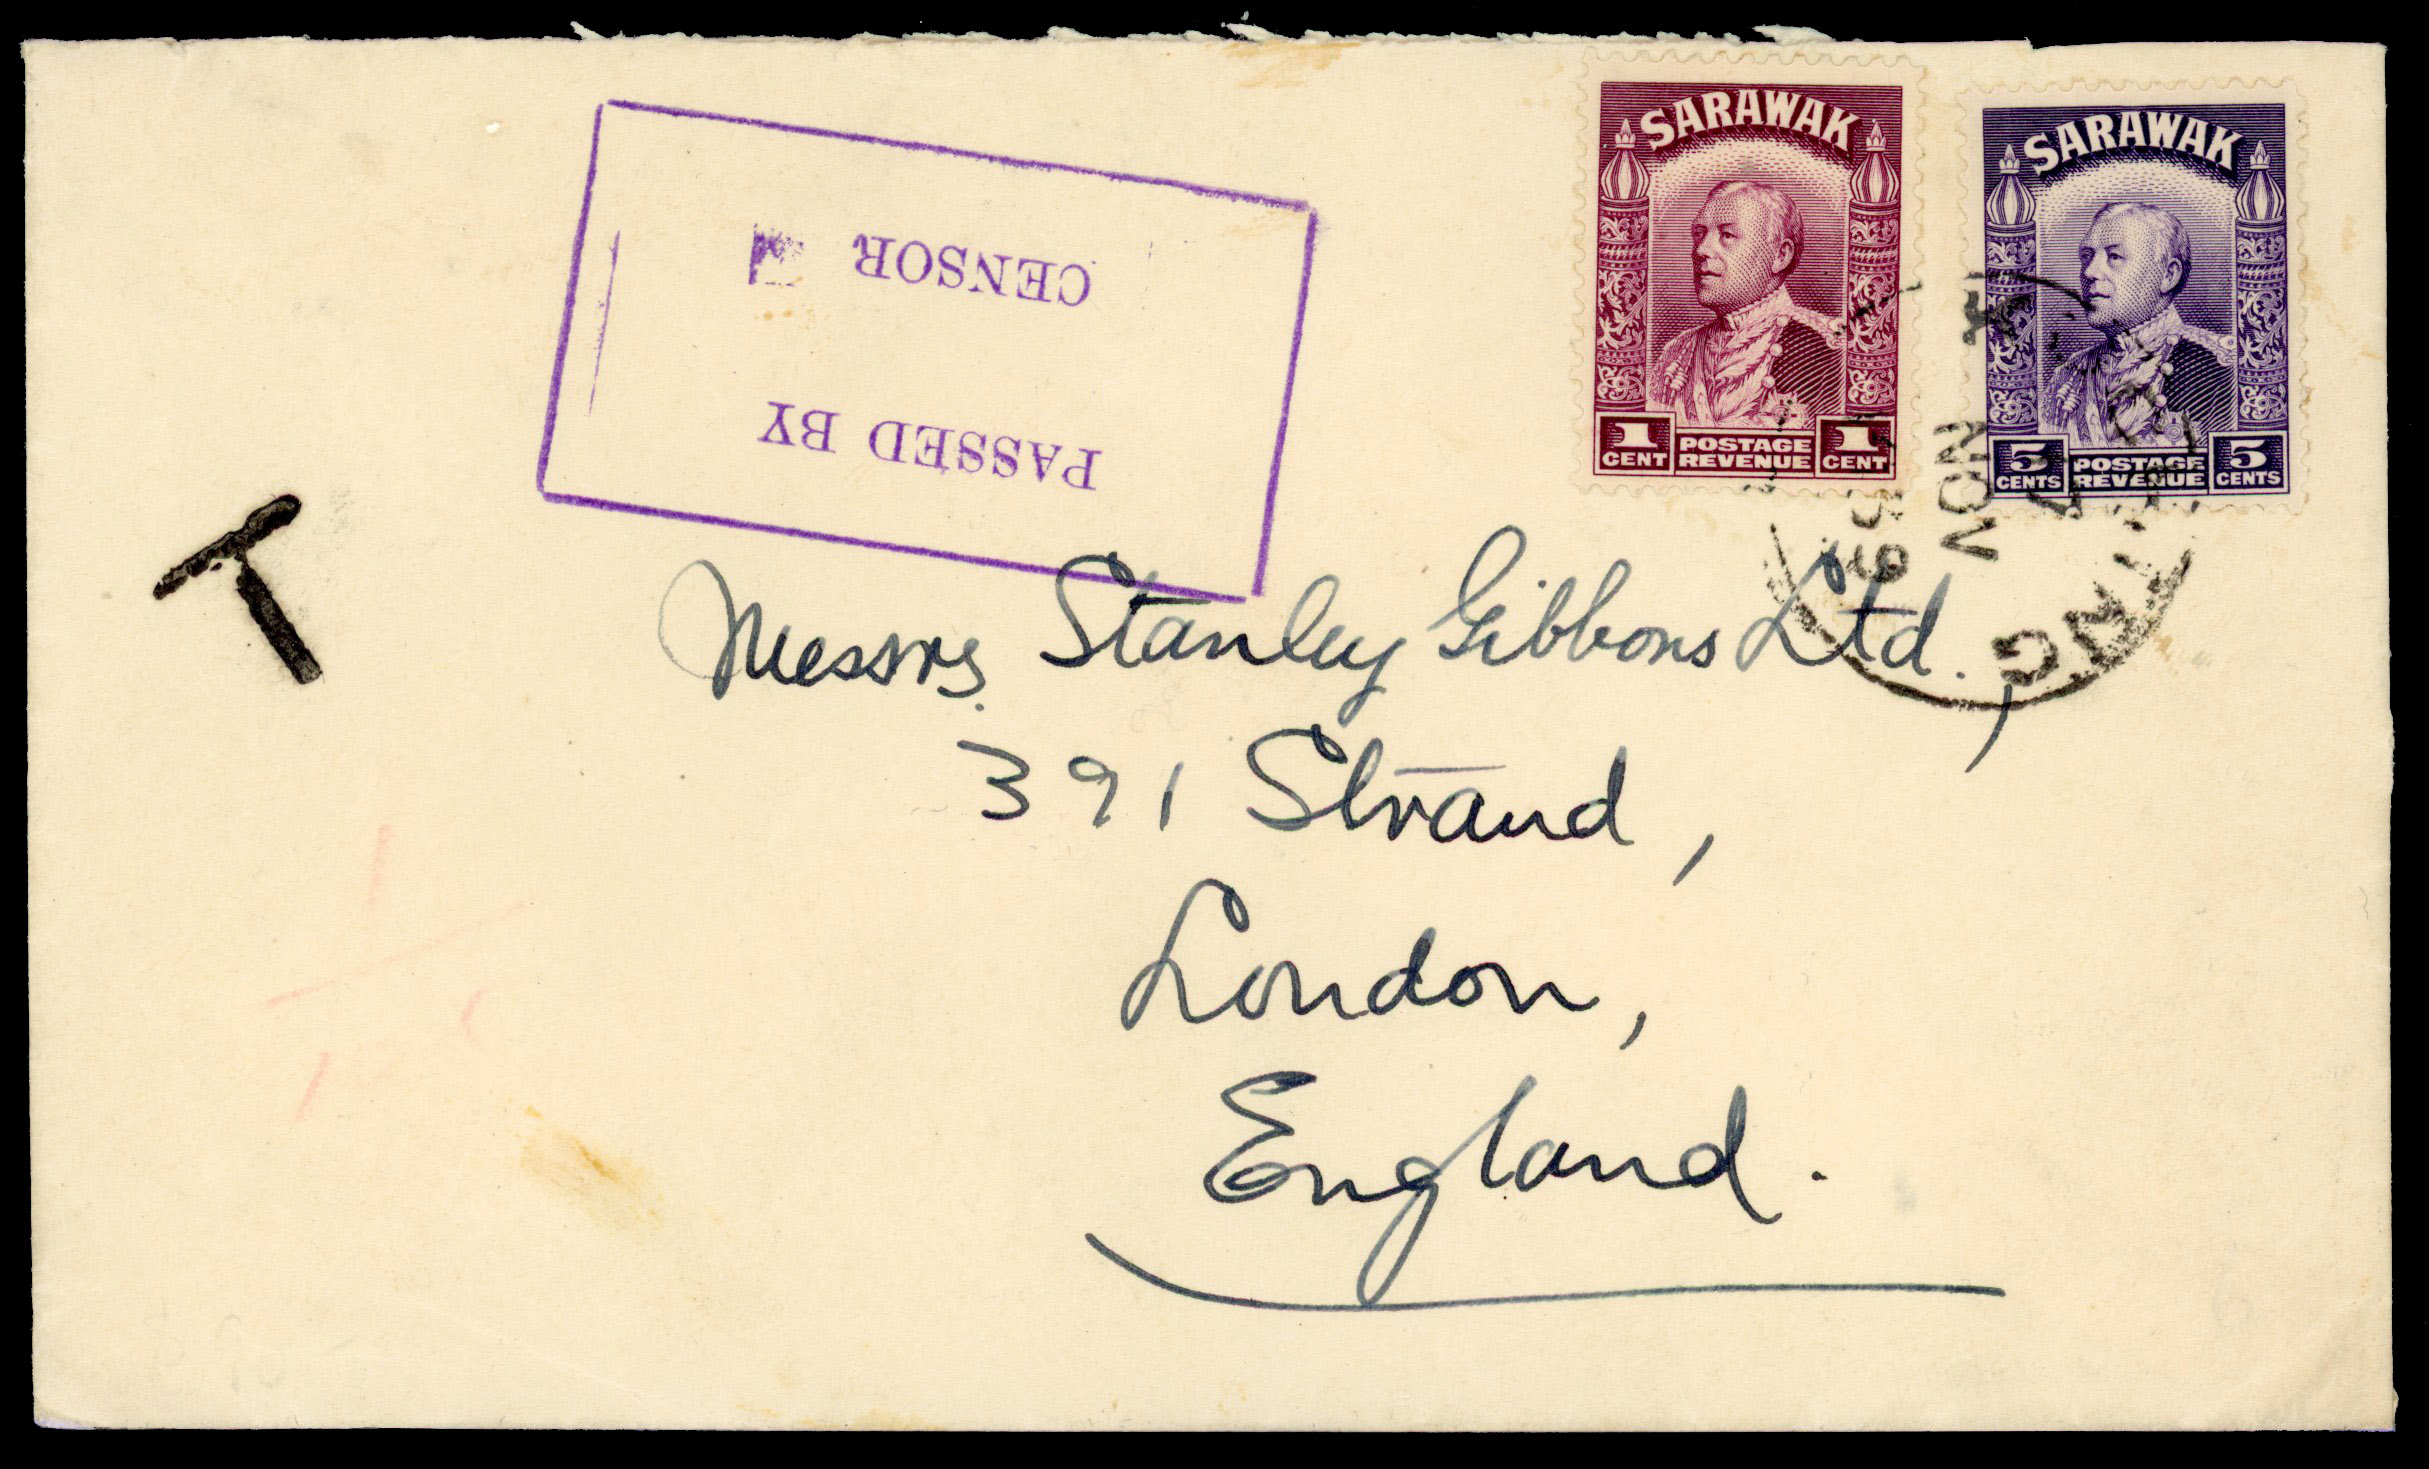 SARAWAK
1 CENT POSTAGE REVENUE 1 CENT
SARAWAK
5 CENTS POSTAGE REVENUE 5 CENTS
PASSED BY
CENSOR
NOV
T
Messrs. Stanley Gibbons Ltd.,
391 Strand,
London,
England.